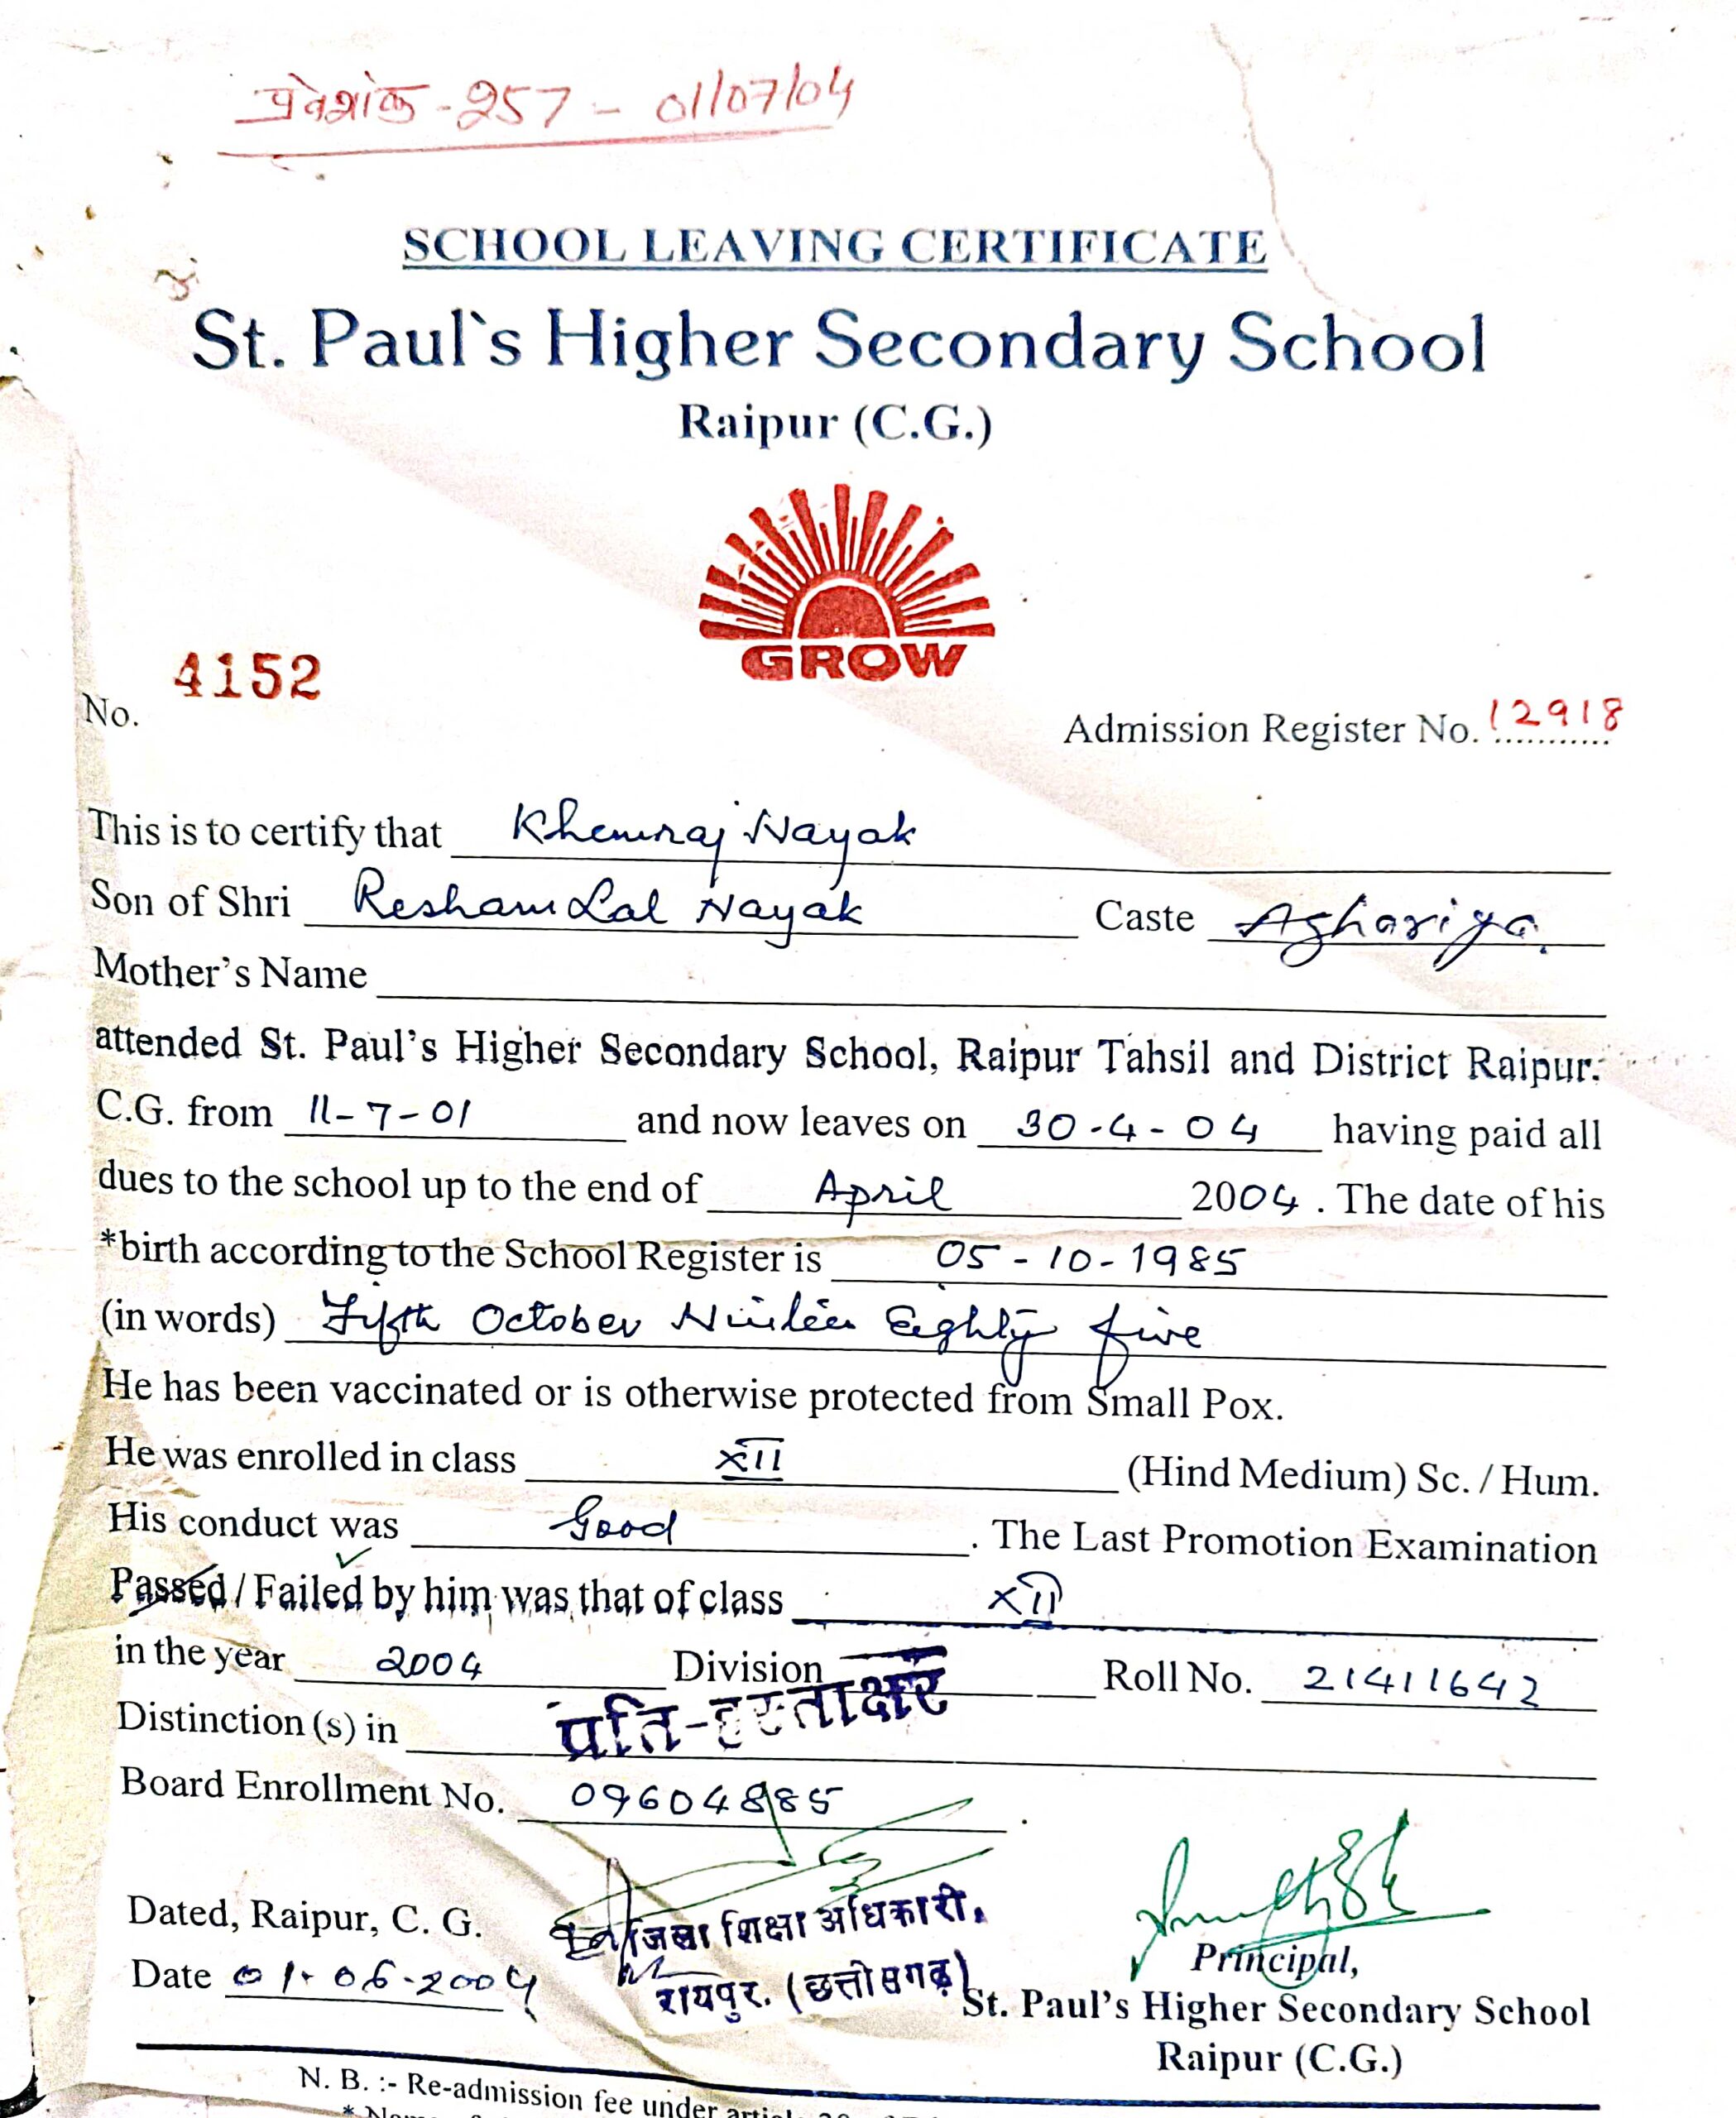 प्रवेशांक-257 - 01/07/04
SCHOOL LEAVING CERTIFICATE
St. Paul`s Higher Secondary School
Raipur (C.G.)
GROW
No. 4152
Admission Register No. 12918
This is to certify that Khemraj Nayak
Son of Shri Resham Lal Nayak Caste Aghariya.
Mother's Name
attended St. Paul's Higher Secondary School, Raipur Tahsil and District Raipur.
C.G. from 11-7-01 and now leaves on 30-4-04 having paid all
dues to the school up to the end of April 2004. The date of his
*birth according to the School Register is 05-10-1985
(in words) Fifth October Ninteen Eighty five
He has been vaccinated or is otherwise protected from Small Pox.
He was enrolled in class XII (Hind Medium) Sc. / Hum.
His conduct was Good. The Last Promotion Examination
Passed / Failed by him was that of class XII
in the year 2004 Division Roll No. 21411642
प्रति-हस्ताक्षर
Distinction (s) in
Board Enrollment No. 09604885.
Dated, Raipur, C. G.
जिला शिक्षा अधिकारी,
Date 01-06-2004
रायपुर. (छत्तीसगढ़)
Principal,
St. Paul's Higher Secondary School
Raipur (C.G.)
N. B. :- Re-admission fee under